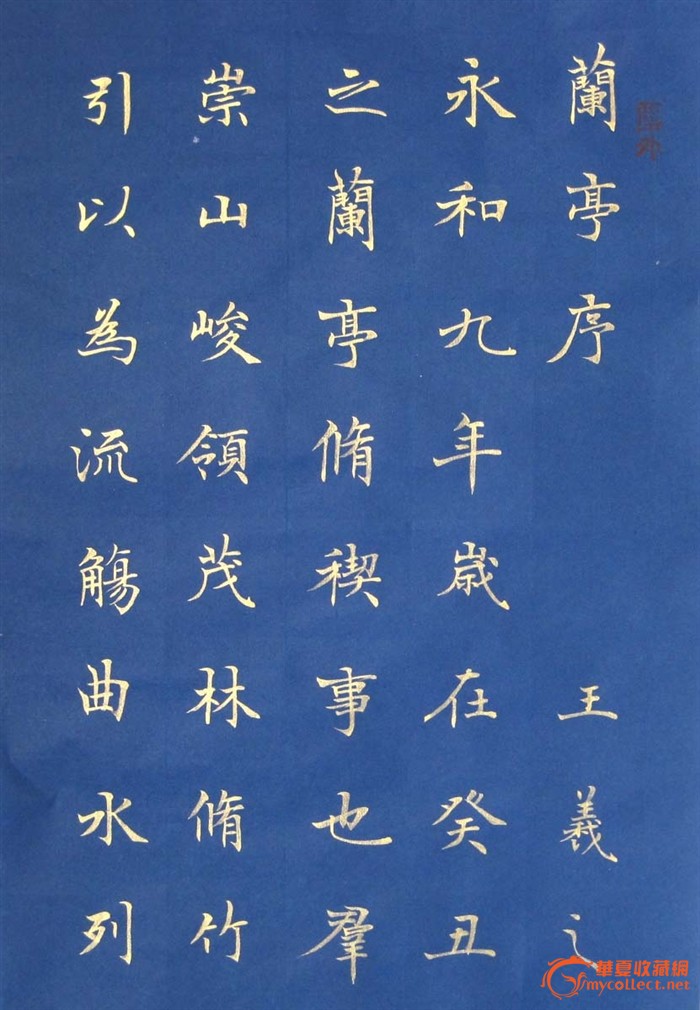 蘭亭序 王羲之
永和九年歲在癸丑
之蘭亭脩稧事也羣
崇山峻領茂林脩竹
引以為流觴曲水列
華夏收藏網
mycollect.net